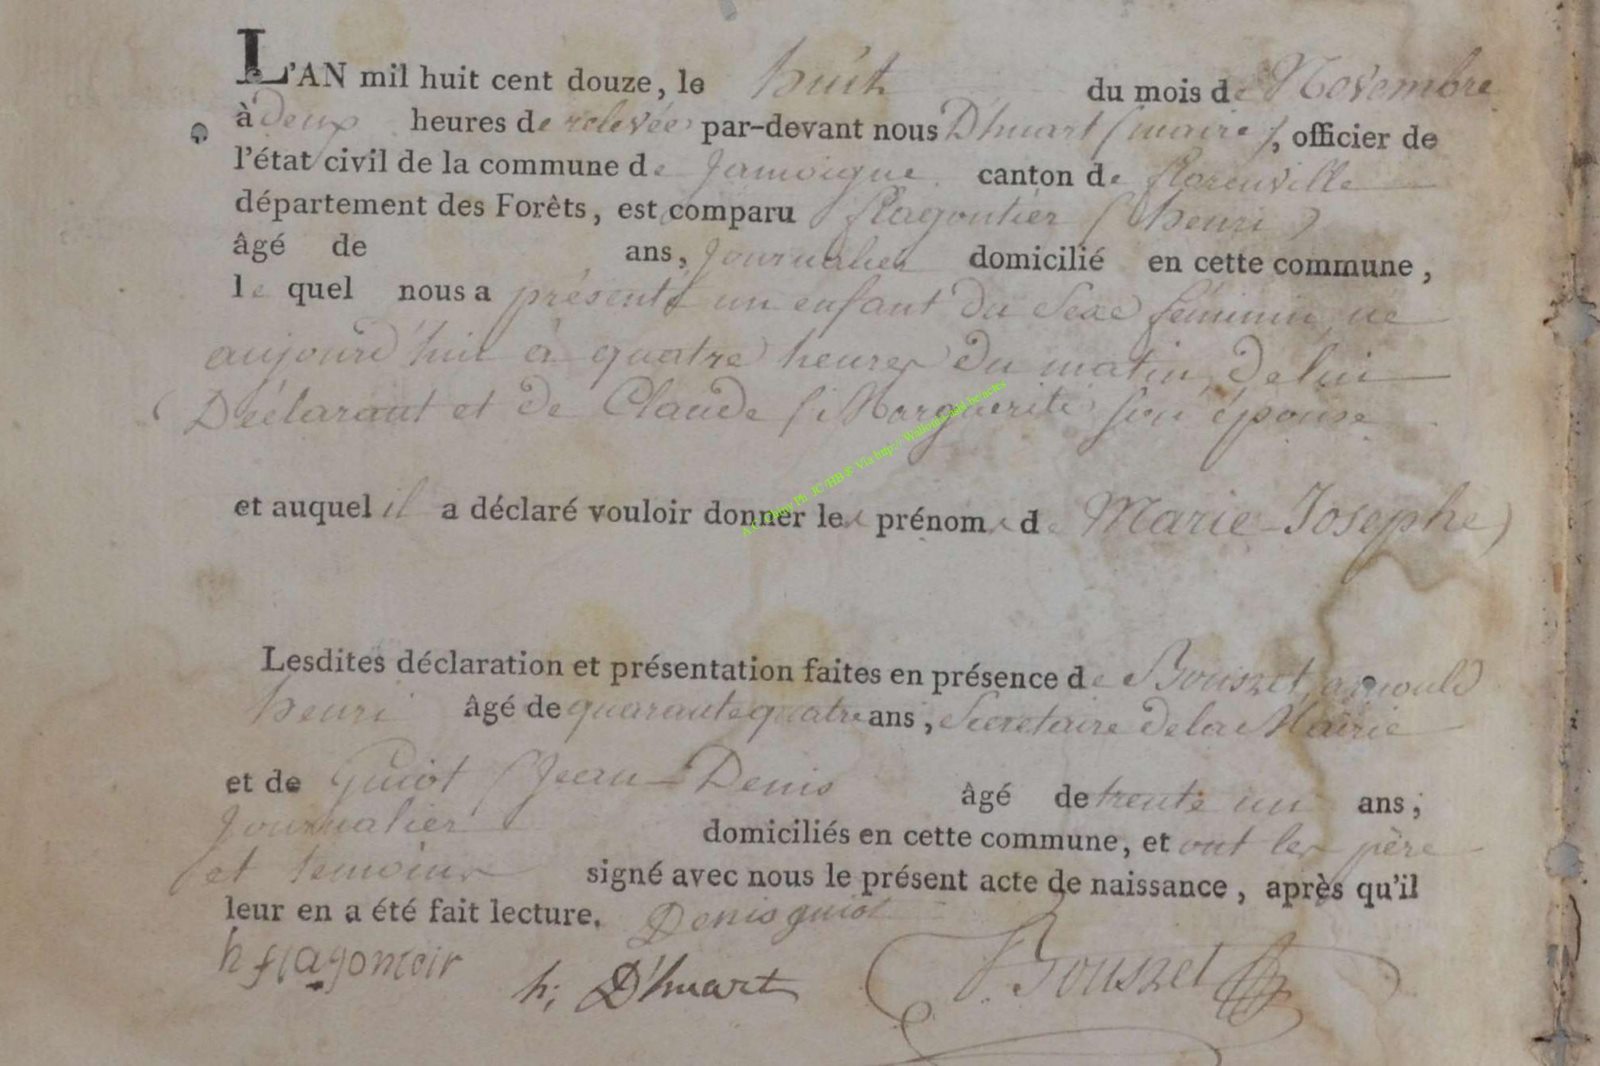 L'AN mil huit cent douze, le huit du mois de Novembre
à deux heures de relevée par-devant nous D'huart (maire), officier de
l'état civil de la commune de Jamoigne canton de Florenville
département des Forêts, est comparu Flagontier (henri)
âgé de ans, Journalier domicilié en cette commune,
le quel nous a présenté un enfant du Sexe féminin, né
aujourd'hui à quatre heures du matin, de lui
Déclarant et de Claude (Marguerite) son épouse
et auquel il a déclaré vouloir donner les prénoms de Marie-Josephe
Lesdites déclaration et présentation faites en présence de Bouszet, arnould
henri âgé de quarante quatre ans, Secretaire de la Mairie
et de Guiot (Jean-Denis âgé de trente un ans,
Journalier domiciliés en cette commune, et ont les père
et temoins signé avec nous le présent acte de naissance, après qu'il
leur en a été fait lecture. Denis guiot
h; D'huart Bouszet